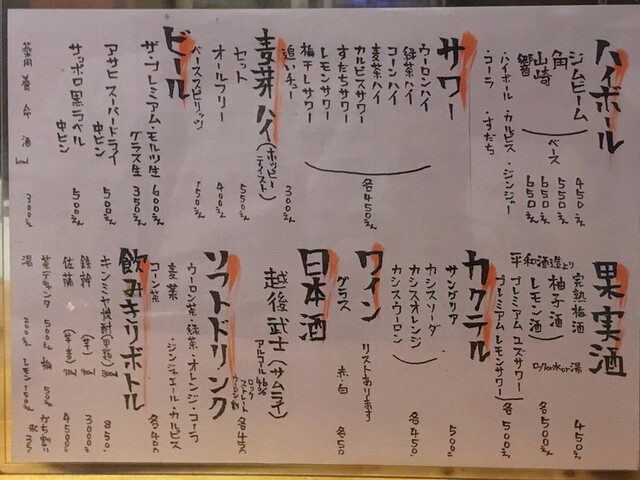 ハイボール
ジムビーム 450えん
角 550えん
山崎 650えん
響 650えん
ベース
・ハイボール・カルピス・ジンジャー
・コーラ・すだち
サワー
ウーロンハイ
緑茶ハイ
コーンハイ
麦茶ハイ
カルピスサワー
すだちサワー
レモンサワー
梅干しサワー
各450えん
追いチュー 300えん
麦芽ハイ(ホッピーテイスト)
セット 550えん
オールフリー 400えん
ベーススピリッツ 150えん
ビール
ザ・プレミアム・モルツ生 600えん
グラス生 350えん
アサヒスーパードライ
中ビン 500えん
サッポロ黒ラベル
中ビン 500えん
薬用養命酒 300えん
果実酒
完熟梅酒 450えん
柚子酒
レモン酒
各500えん
ロックor水or湯
平和酒造より
プレミアムユズサワー
プレミアムレモンサワー
各500えん
カクテル
サングリア 500えん
カシスソーダ
カシスオレンジ
カシスウーロン
各450えん
ワイン リストあります
グラス 赤・白 各50
日本酒
越後武士(サムライ)
アルコール46%
ロック
ストレート
各450
ソフトドリンク
ウーロン茶・緑茶・オレンジ・コーラ
麦茶・ジンジャエール・カルピス
コーン茶 各400
飲みきりボトル
キンミヤ焼酎(甲類)
(芋) 3000えん
佐藤 4500えん
茶デキャンタ 500えん 梅 50えん
湯 200えん レモン150えん